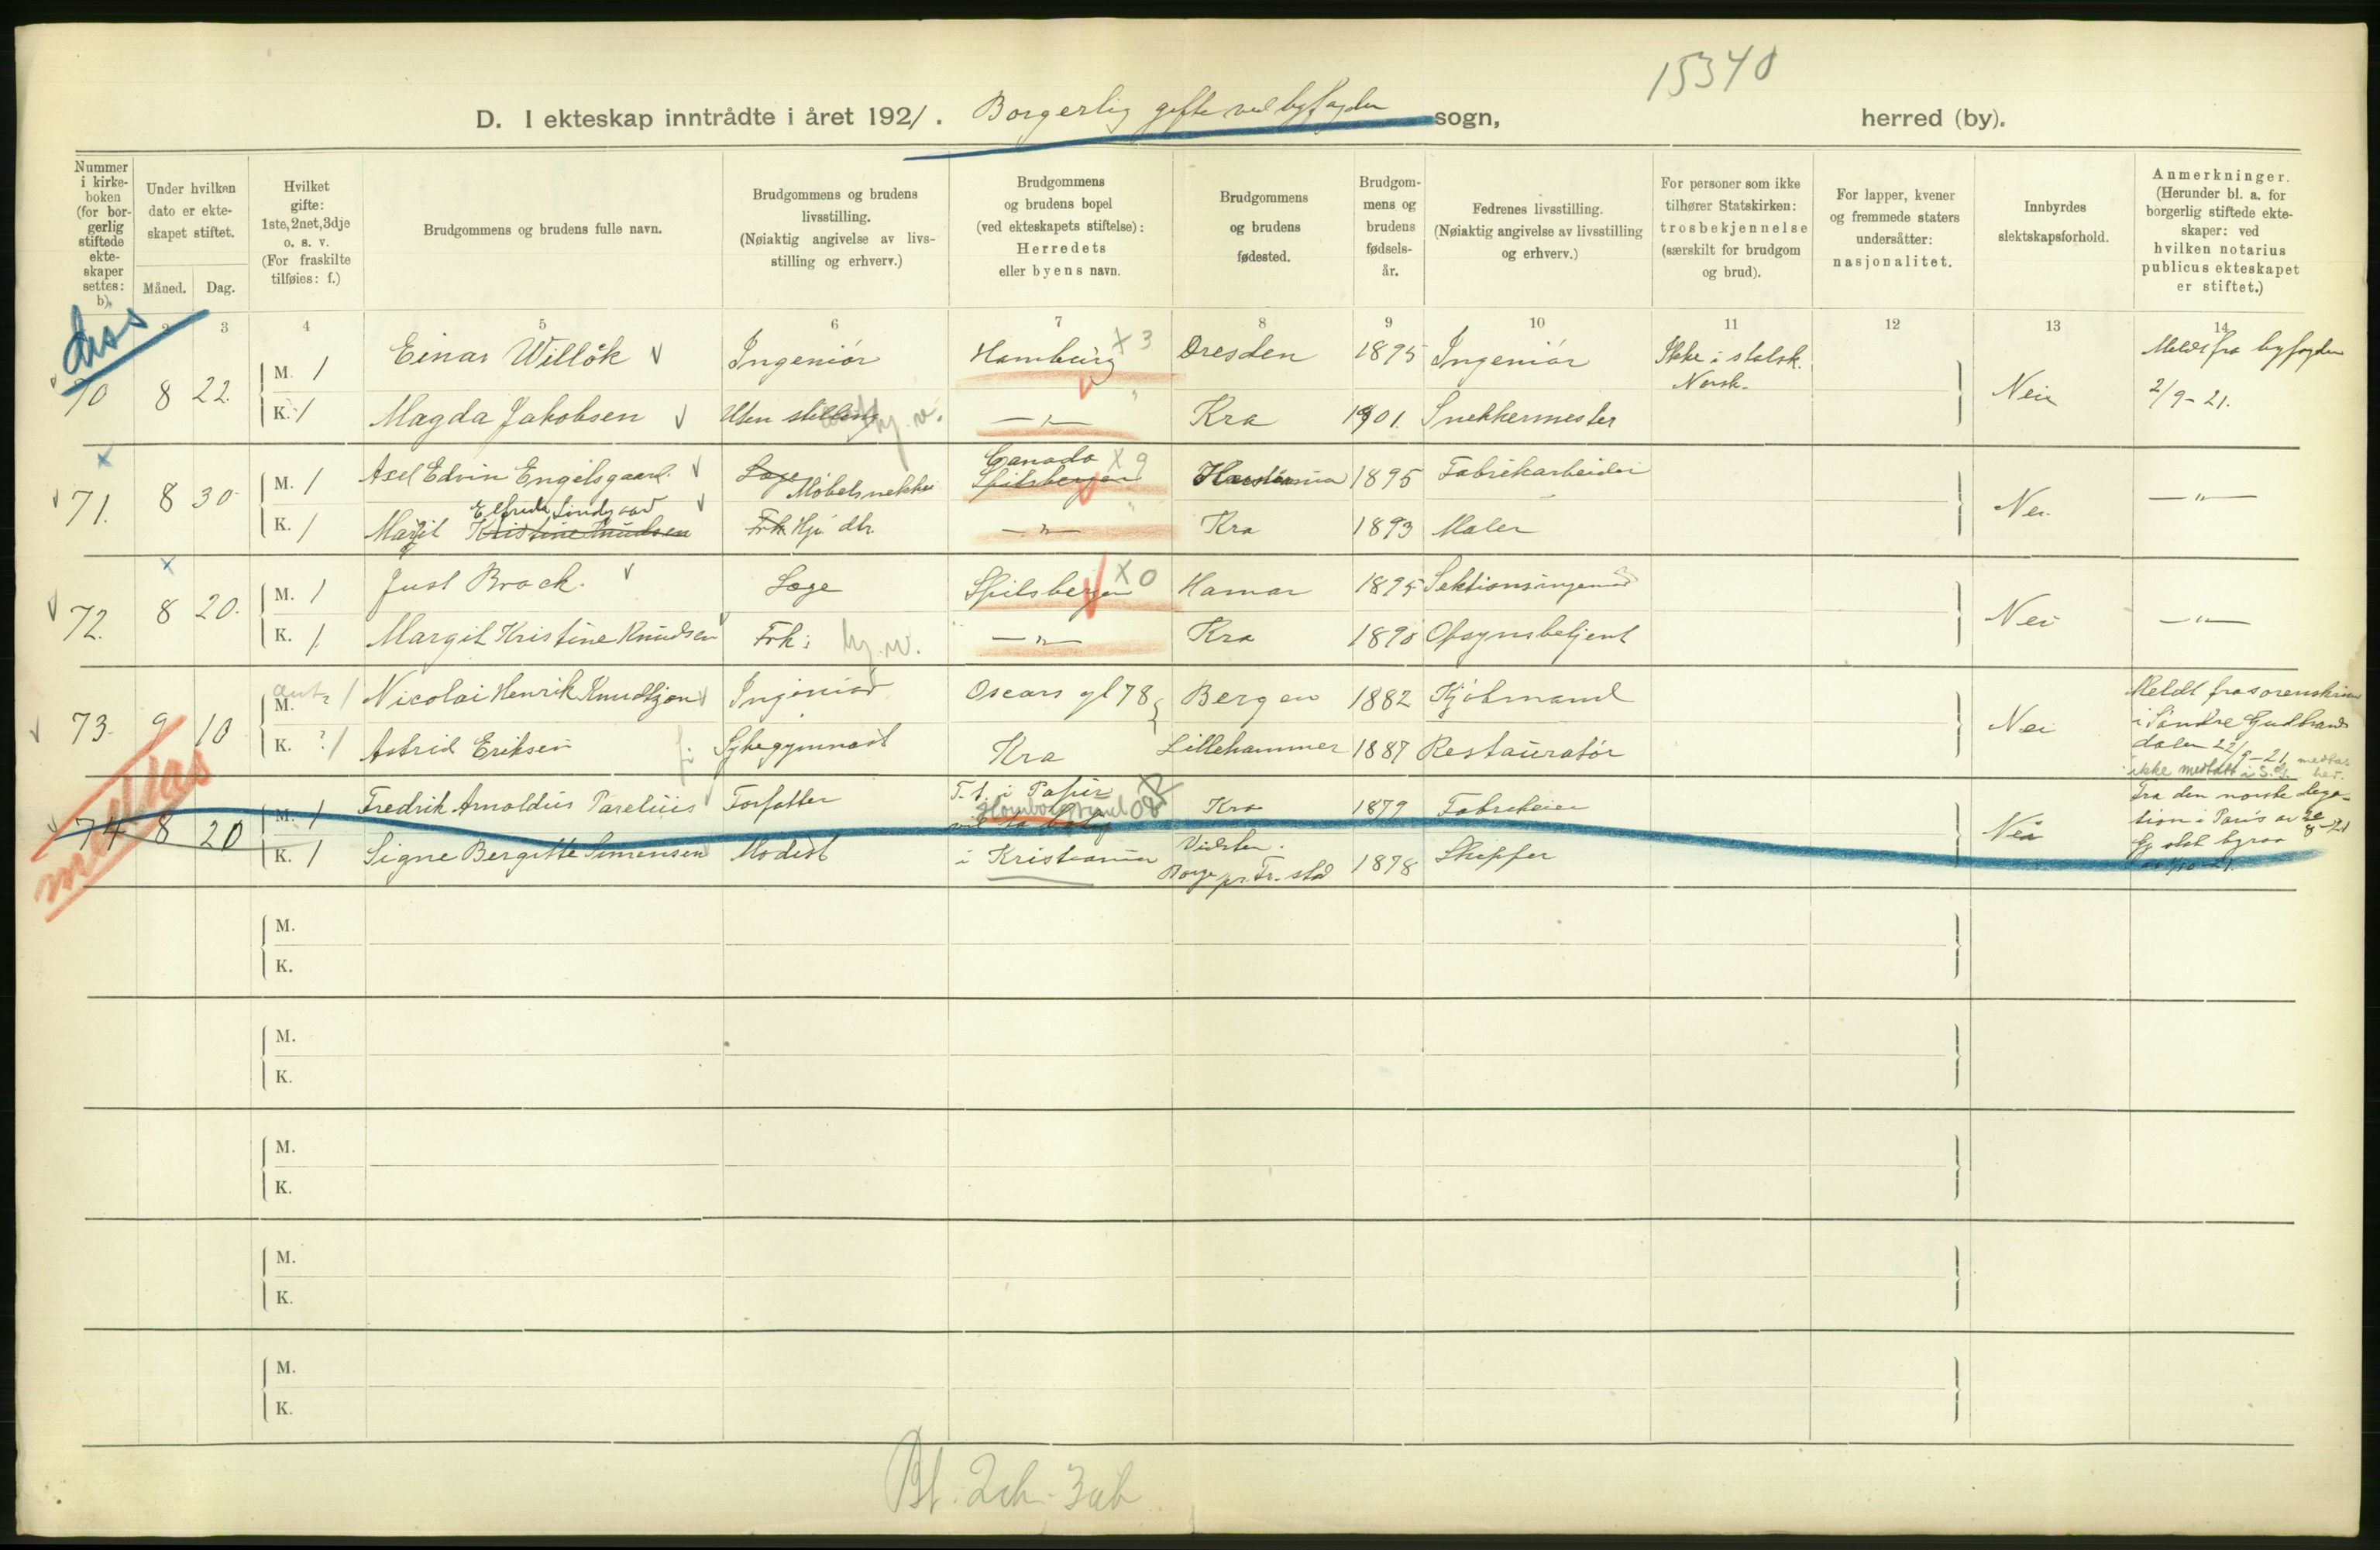 15340
D. I ekteskap inntrådte i året 1921. Borgerlig gifte ved byfogden sogn, herred (by).
Nummer i kirke-boken (for bor-gerlig stiftede ekte-skaper settes: b).
Under hvilken dato er ekte-skapet stiftet.
Måned. Dag.
Hvilket gifte: 1ste, 2net, 3dje o. s. v. (For fraskilte tilføies: f.)
Brudgommens og brudens fulle navn.
Brudgommens og brudens livsstilling. (Nøiaktig angivelse av livs-stilling og erhverv.)
Brudgommens og brudens bopel (ved ekteskapets stiftelse): Herredets eller byens navn.
Brudgommens og brudens fødested.
Brudgom-mens og brudens fødsels-år.
Fedrenes livsstilling. (Nøiaktig angivelse av livsstilling og erhverv.)
For personer som ikke tilhører Statskirken: trosbekjennelse (særskilt for brudgom og brud).
For lapper, kvener og fremmede staters undersåtter: nasjonalitet.
Innbyrdes slektskapsforhold.
Anmerkninger. (Herunder bl. a. for borgerlig stiftede ekte-skaper: ved hvilken notarius publicus ekteskapet er stiftet.)
2 3 4 5 6 7 8 9 10 11 12 13 14
70 8 22 M. 1 Einar Willók Ingeniór Hamburg X 3 Dresden 1895 Ingeniór Ikke i statsk. Norsk. Nei Meldt fra byfogden 2/9-21.
K. 1 Magda Jakobsen Uten stilling — " — Kra 1901. Snekkermester
71. 8 30 M. 1 Axel Edvin Engelsgaard. Læge Möbelsnekker Canada Spitsbergen X 9 1895 Fabrikarbeider Nei. — " —
K. 1 Margit Kristine Knudsen Elfrida Lindgaard Frk Hj. dtr. — " — Kra 1893 Maler
72. 8 20. M. 1 Just Brock. Læge Spitsbergen X 0 Hamar 1895 Sektionsingeniør Nei — " —
K. 1. Margit Kristine Knudsen Frk: hj. v. — " — Kra 1890 Opsynsbetjent
73. 9 10 M. ant? 1 Nicolai Henrik Knudtzon Ingeniør Oscars gt 78 Bergen 1882 Kjøbmand Nei Meldt fra sorenskriver i Søndre Gudbrands dalen 22/9-21 ikke medtatt i S.G. medtas her.
K. ? 1 Astrid Eriksen Sykegymnast Kra Lillehammer 1887 Restauratør
74 8 20 M. 1 Fredrik Arnoldus Parelius Forfatter F. t. i Paris vil ta bolig Kra 1879 Fabrikeier Nei Fra den norske lega-tion i Paris av 20/8-21
K. 1 Signe Bergitte Simensen Modist i Kristiania Borge pr. Fr. stad 1878 Skipper
medtas
M.
K.
M.
K.
M.
K.
M.
K.
M.
K.